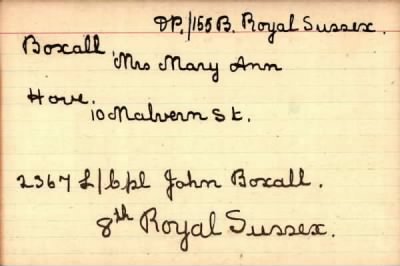 DP./155B. Royal Sussex.
Boxall
Mrs Mary Ann
Hove.
10 Malvern St.
2367 L/Cpl John Boxall.
8th Royal Sussex.